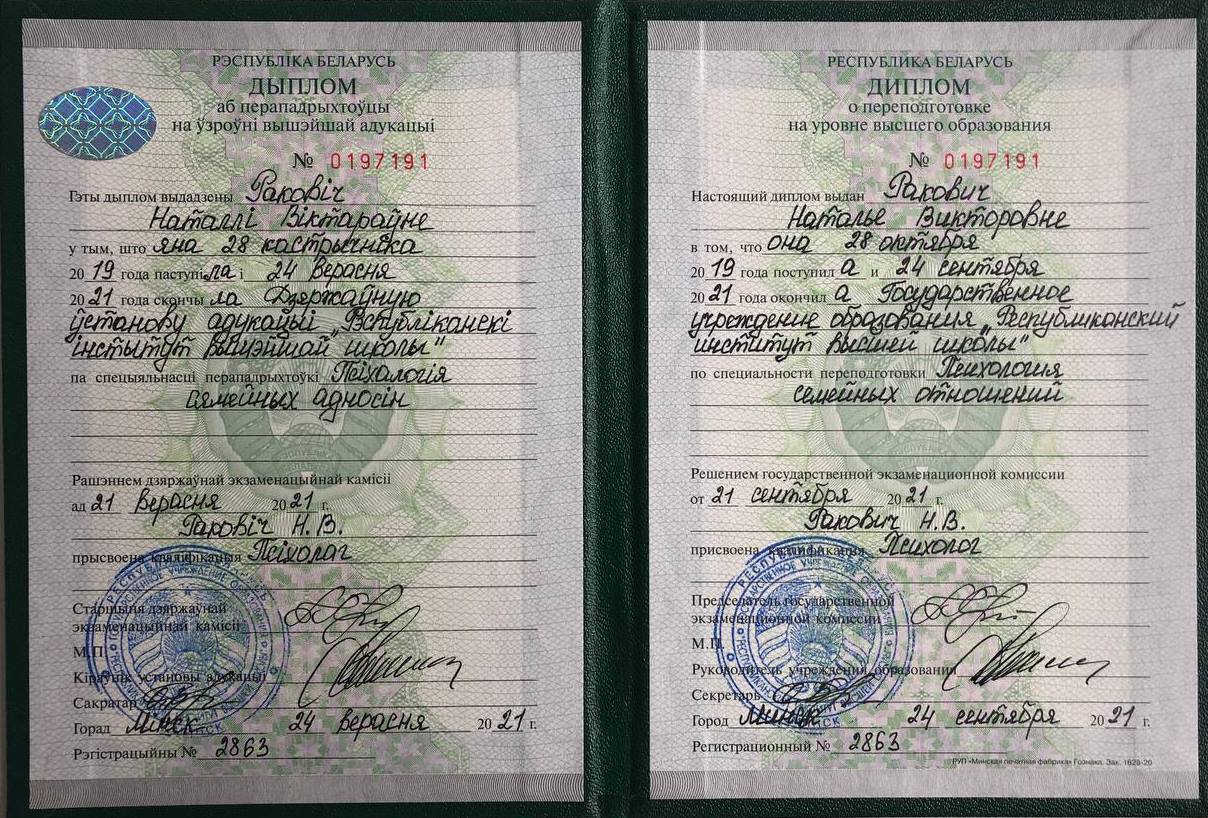 РЭСПУБЛІКА БЕЛАРУСЬ
ДЫПЛОМ
аб перападрыхтоўцы
на ўзроўні вышэйшай адукацыі
№ 0197191
Гэты дыплом выдадзены Раковіч
Наталлі Віктараўне
у тым, што яна 28 кастрычніка
2019 года паступіла і 24 верасня
2021 года скончыла Дзяржаўную
ўстанову адукацыі „Рэспубліканскі
інстытут вышэйшай школы"
па спецыяльнасці перападрыхтоўкі Псіхалогія
сямейных адносін
Рашэннем дзяржаўнай экзаменацыйнай камісіі
ад 21 верасня 2021 г.
Раковіч Н.В.
прысвоена кваліфікацыя Псіхолаг
Старшыня дзяржаўнай
экзаменацыйнай камісіі
М.П.
Кіраўнік установы адукацыі
Сакратар
Горад Мінск 24 верасня 2021 г.
Рэгістрацыйны № 2863
РЕСПУБЛИКА БЕЛАРУСЬ
ДИПЛОМ
о переподготовке
на уровне высшего образования
№ 0197191
Настоящий диплом выдан Ракович
Наталье Викторовне
в том, что она 28 октября
2019 года поступила и 24 сентября
2021 года окончила Государственное
учреждение образования „Республиканский
институт высшей школы"
по специальности переподготовки Психология
семейных отношений
Решением государственной экзаменационной комиссии
от 21 сентября 2021 г.
Ракович Н.В.
присвоена квалификация Психолог
Председатель государственной
экзаменационной комиссии
М.П.
Руководитель учреждения образования
Секретарь
Город Минск 24 сентября 2021 г.
Регистрационный № 2863
РУП «Минская печатная фабрика» Гознака. Зак. 1628-20